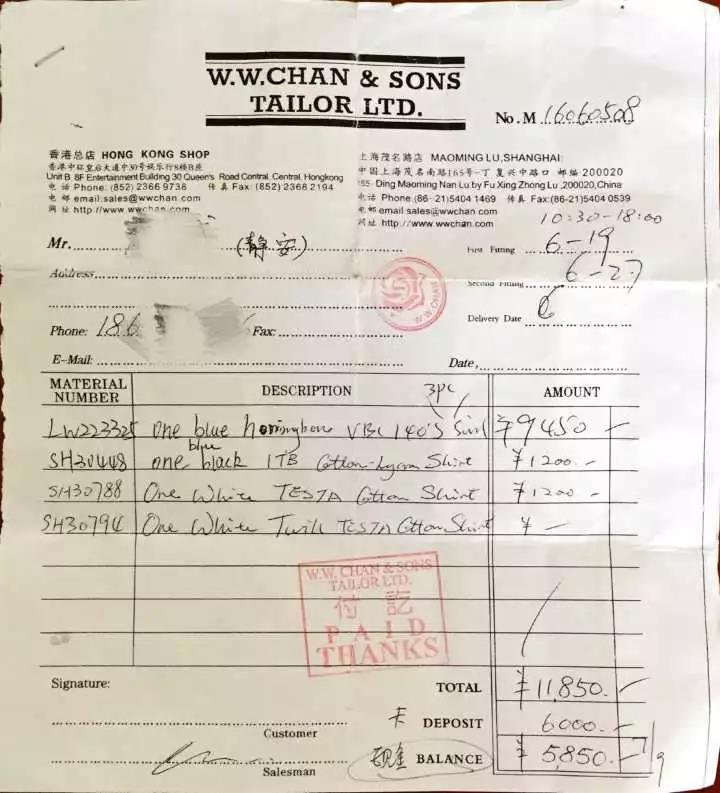 W.W.CHAN & SONS
TAILOR LTD.
No. M 16060508
香港总店 HONG KONG SHOP
香港中环皇后大道中30号娱乐行8楼B座
Unit B 8F Entertainment Building 30 Queen's Road Contral, Central, Hongkong
电话 Phone: (852) 2366 9738 传真 Fax: (852) 2368 2194
电邮 email:sales@wwchan.com
网址 http://www.wwchan.com
上海茂名路店 MAOMING LU,SHANGHAI:
中国上海茂名南路165号-丁 复兴中路口 邮编 200020
165- Ding Maoming Nan Lu.by Fu Xing Zhong Lu ,200020,China
电话 Phone.(86-21)5404 1469 传真 Fax:(86-21)5404 0539
电邮 email sales@wwchan.com
网址 http://www.wwchan.com
10:30-18:00
Mr. (静安)
First Fitting 6-19
Address
Second Fitting 6-27
W.W CHAN
Phone: 186 Fax:
Delivery Date
E-Mail:
Date,
MATERIAL NUMBER DESCRIPTION AMOUNT
3pc
LW223325 One blue herringbone VBC 140'S Suit ¥9450-
blue
SH30448 one black 1TB Cotton-Lycra Shirt ¥1200.-
SH30788 One White TESTA Cotton Shirt ¥1200-
SH30794 One White Twill TESTA Cotton Shirt ¥ -
W.W. CHAN & SONS
TAILOR LTD.
付訖
PAID
THANKS
Signature:
TOTAL ¥11,850.-
卡 DEPOSIT 6000.-
Customer
现金 BALANCE ¥5,850.-
Salesman